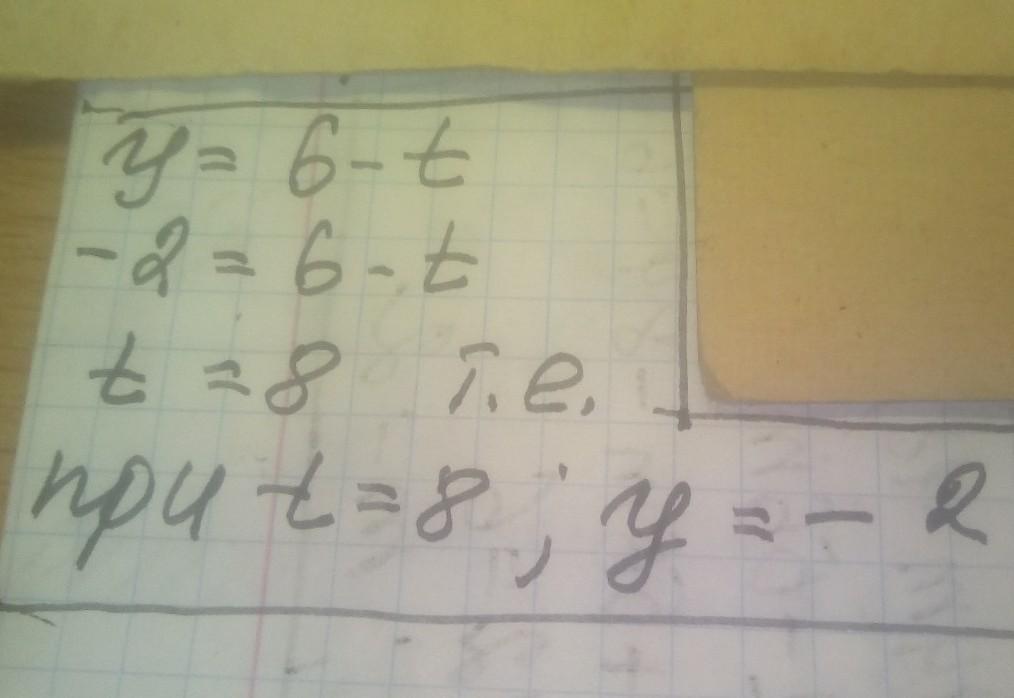 y = 6 - t
-2 = 6 - t
t = 8 т.е.
при t = 8 ; y = - 2